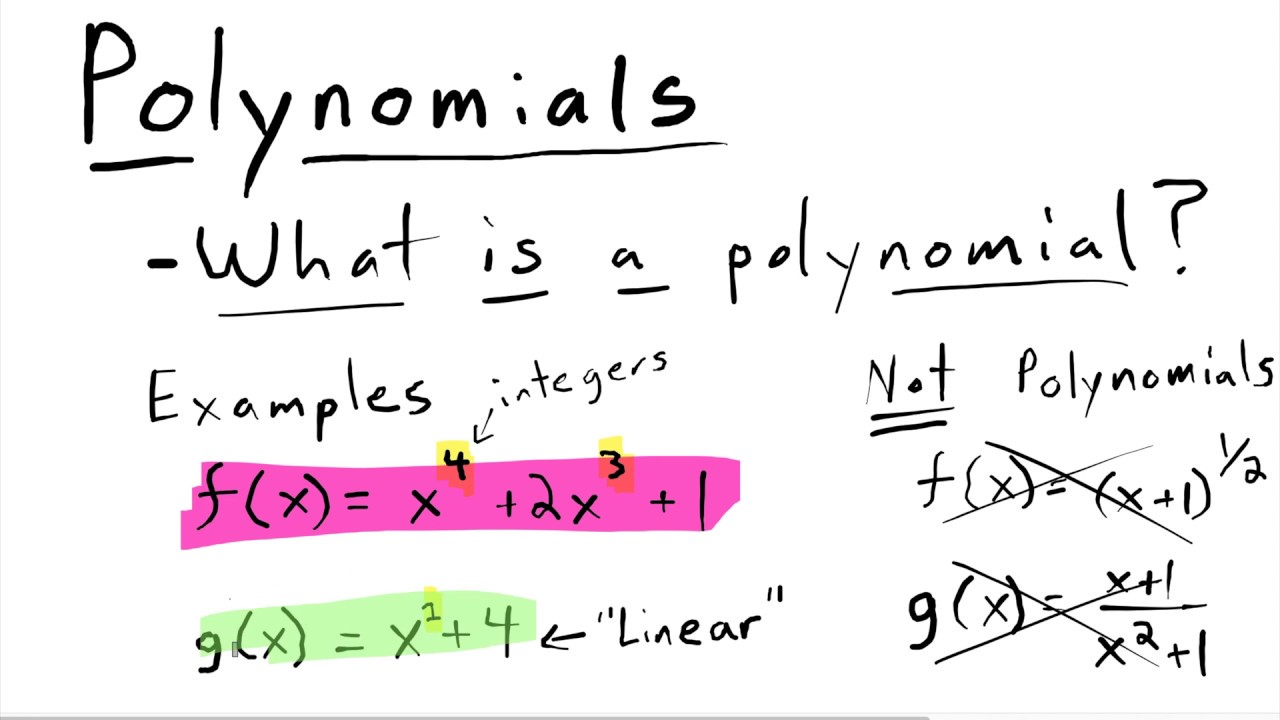 Polynomials
- What is a polynomial?
Examples
integers
f(x) = x^4 + 2x^3 + 1
g(x) = x^1 + 4 ← "Linear"
Not Polynomials
f(x) = (x+1)^1/2
g(x) = x+1 / x^2+1